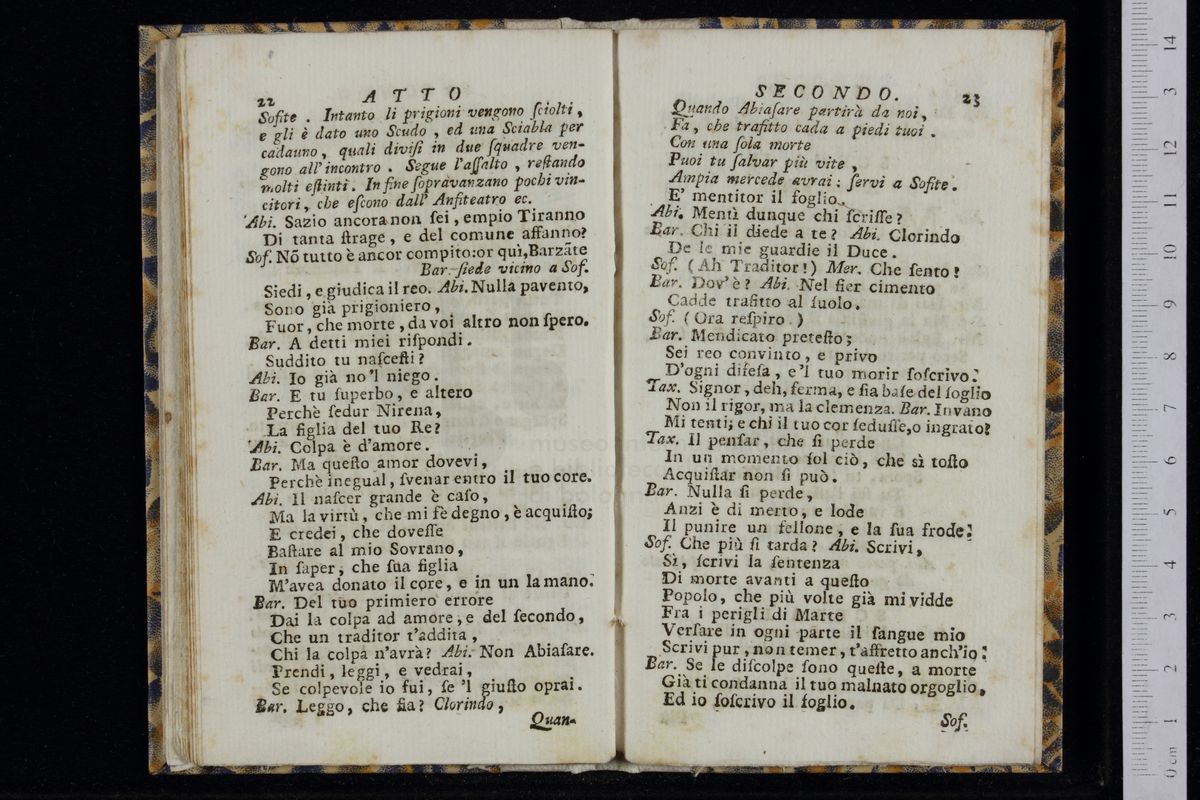 22 ATTO
Sofite . Intanto li prigioni vengono ſciolti ,
e gli è dato uno Scudo , ed una Sciabla per
cadauno , quali diviſi in due ſquadre ven-
gono all'incontro . Segue l'aſſalto , reſtando
molti eſtinti . In fine ſopravanzano pochi vin-
citori , che eſcono dall' Anfiteatro ec.
Abi. Sazio ancora non ſei , empio Tiranno
Di tanta ſtrage , e del comune affanno?
Sof. Nõ tutto è ancor compito:or quì,Barzāte
Bar. ſiede vicino a Sof.
Siedi , e giudica il reo. Abi. Nulla pavento,
Sono già prigioniero ,
Fuor , che morte , da voi altro non ſpero.
Bar. A detti miei riſpondi .
Suddito tu naſceſti ?
Abi. Io già no 'l niego .
Bar. E tu ſuperbo , e altero
Perchè ſedur Nirena ,
La figlia del tuo Re?
Abi. Colpa è d'amore .
Bar. Ma queſto amor dovevi ,
Perchè inegual , ſvenar entro il tuo core.
Abi. Il naſcer grande è caſo ,
Ma la virtù , che mi fè degno , è acquiſto;
E credei , che doveſſe
Baſtare al mio Sovrano ,
In ſaper , che ſua figlia
M'avea donato il core , e in un la mano.
Bar. Del tuo primiero errore
Dai la colpa ad amore , e del ſecondo ,
Che un traditor t'addita ,
Chi la colpa n'avrà? Abi. Non Abiaſare.
Prendi , leggi , e vedrai ,
Se colpevole io fui , ſe 'l giuſto oprai .
Bar. Leggo , che fia? Clorindo ,
Quan-
SECONDO. 23
Quando Abiaſare partirà da noi ,
Fa , che trafitto cada a piedi tuoi .
Con una ſola morte
Puoi tu ſalvar più vite ,
Ampia mercede avrai : ſervi a Sofite .
E' mentitor il foglio .
Abi. Mentì dunque chi ſcriſſe ?
Bar. Chi il diede a te ? Abi. Clorindo
De le mie guardie il Duce .
Sof. ( Ah Traditor ! ) Mer. Che ſento !
Bar. Dov'è ? Abi. Nel fier cimento
Cadde trafitto al ſuolo .
Sof. ( Ora reſpiro . )
Bar. Mendicato preteſto ;
Sei reo convinto , e privo
D'ogni difeſa , e 'l tuo morir ſoſcrivo .
Tax. Signor , deh, ferma, e ſia baſe del ſoglio
Non il rigor, ma la clemenza. Bar. Invano
Mi tenti; e chi il tuo cor ſeduſſe,o ingrato?
Tax. Il penſar , che ſi perde
In un momento ſol ciò , che sì toſto
Acquiſtar non ſi può .
Bar. Nulla ſi perde ,
Anzi è di merto , e lode
Il punire un fellone , e la ſua frode .
Sof. Che più ſi tarda ? Abi. Scrivi ,
Sì , ſcrivi la ſentenza
Di morte avanti a queſto
Popolo , che più volte già mi vidde
Fra i perigli di Marte
Verſare in ogni parte il ſangue mio
Scrivi pur , non temer , t'affretto anch'io :
Bar. Se le diſcolpe ſono queſte , a morte
Già ti condanna il tuo malnato orgoglio ,
Ed io ſoſcrivo il foglio .
Sof.
0 cm 1 2 3 4 5 6 7 8 9 10 11 12 3 14